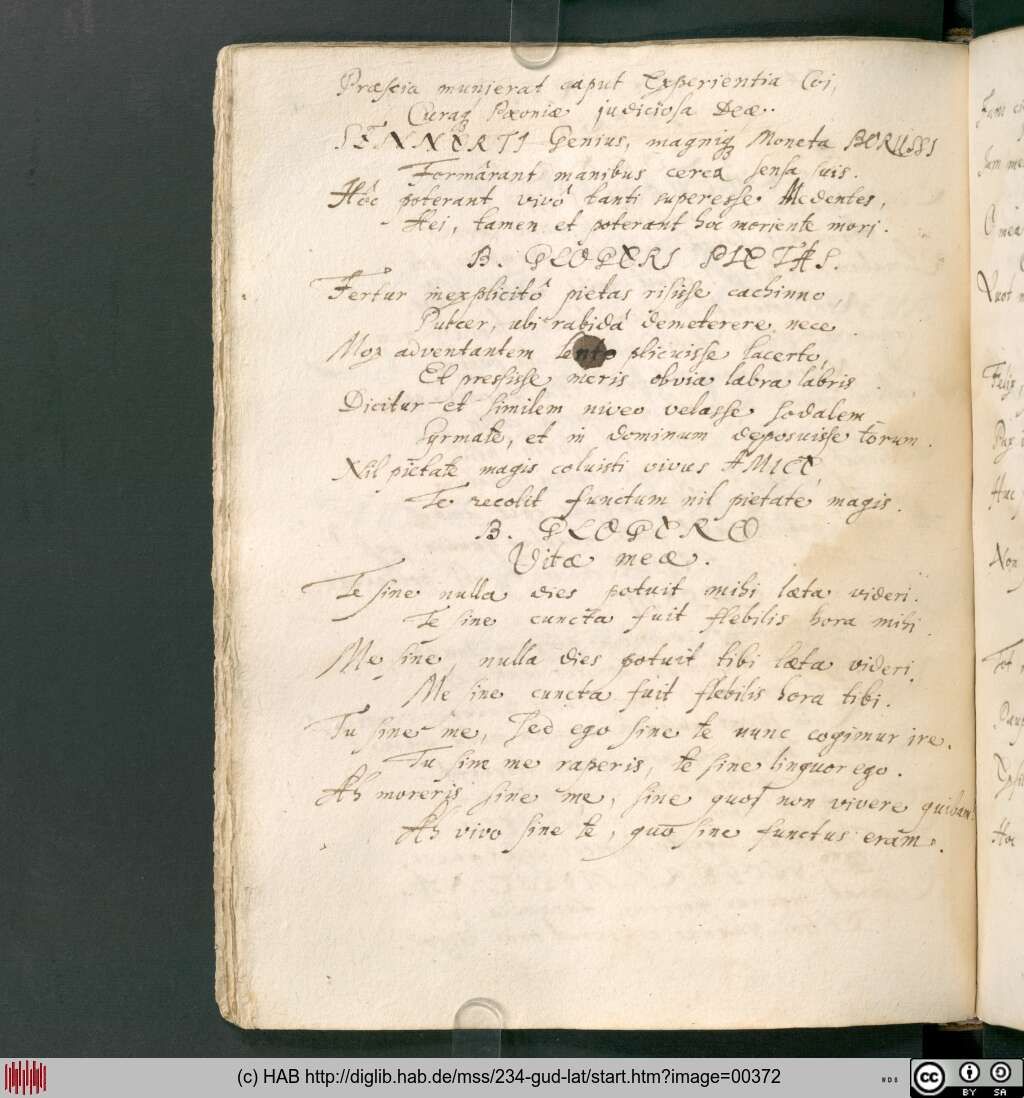 Præscia munierat caput Experientia Coi,
Curaq Pæoniæ judiciosa Deæ.
SENNERTI Genius, magniq Moneta BORUSSI
Formârant manibus cerea sensa suis.
Hôc poterant vivô tanti superesse Medentes,
Hei, tamen et poterant hoc moriente mori.
B. PLOPERI PIETAS.
Fertur inexplicitô pietas risisse cachinno
Putcer, ubi rabidâ demeterere nece
Mox adventantem lento plicuisse lacerto,
Et pressisse meris obvia labra labris
Dicitur et similem niveo velasse sodalem
Syrmate, et in dominum deposuisse torum.
Nil pietate magis coluisti vivus AMICE,
Te recolit functum nil pietate magis.
B. PLOPERO
Vitæ meæ.
Te sine nulla dies potuit mihi læta videri.
Te sine cuncta fuit flebilis hora mihi
Me sine, nulla dies potuit tibi læta videri,
Me sine cuncta fuit flebilis hora tibi.
Tu sine me, sed ego sine te nunc cogimur ire.
Tu sine me raperis, te sine linquor ego.
Ah moreris sine me, sine quo non vivere quibam:
Ah vivo sine te, quo sine functus eram.
(c) HAB http://diglib.hab.de/mss/234-gud-lat/start.htm?image=00372
BY SA